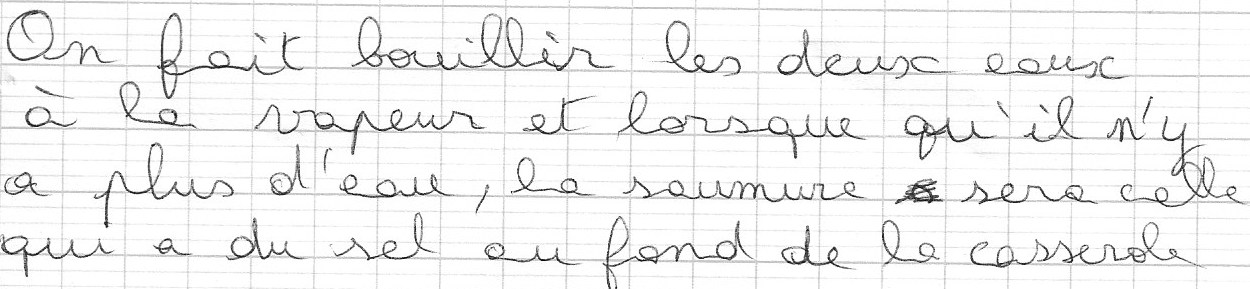 On fait bouillir les deux eaux
à la vapeur et lorsque qu'il n'y
a plus d'eau, la saumure sera celle
qui a du sel au fond de la casserole